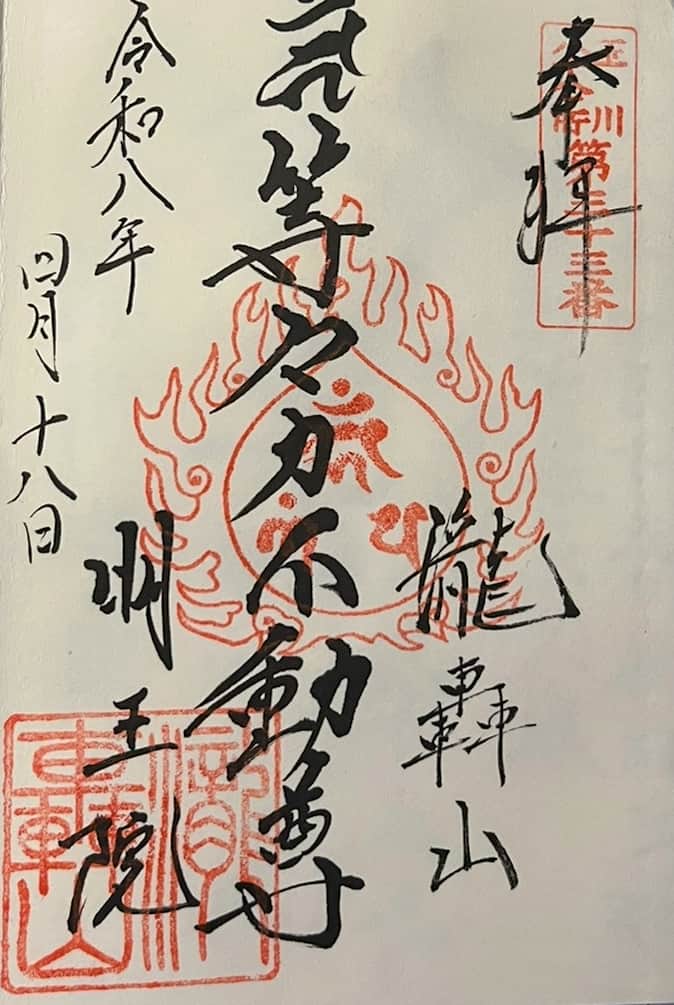 奉拝
玉川
第三十三番
瀧轟山
等々力不動尊
明王院
令和八年
四月十八日
瀧
轟山